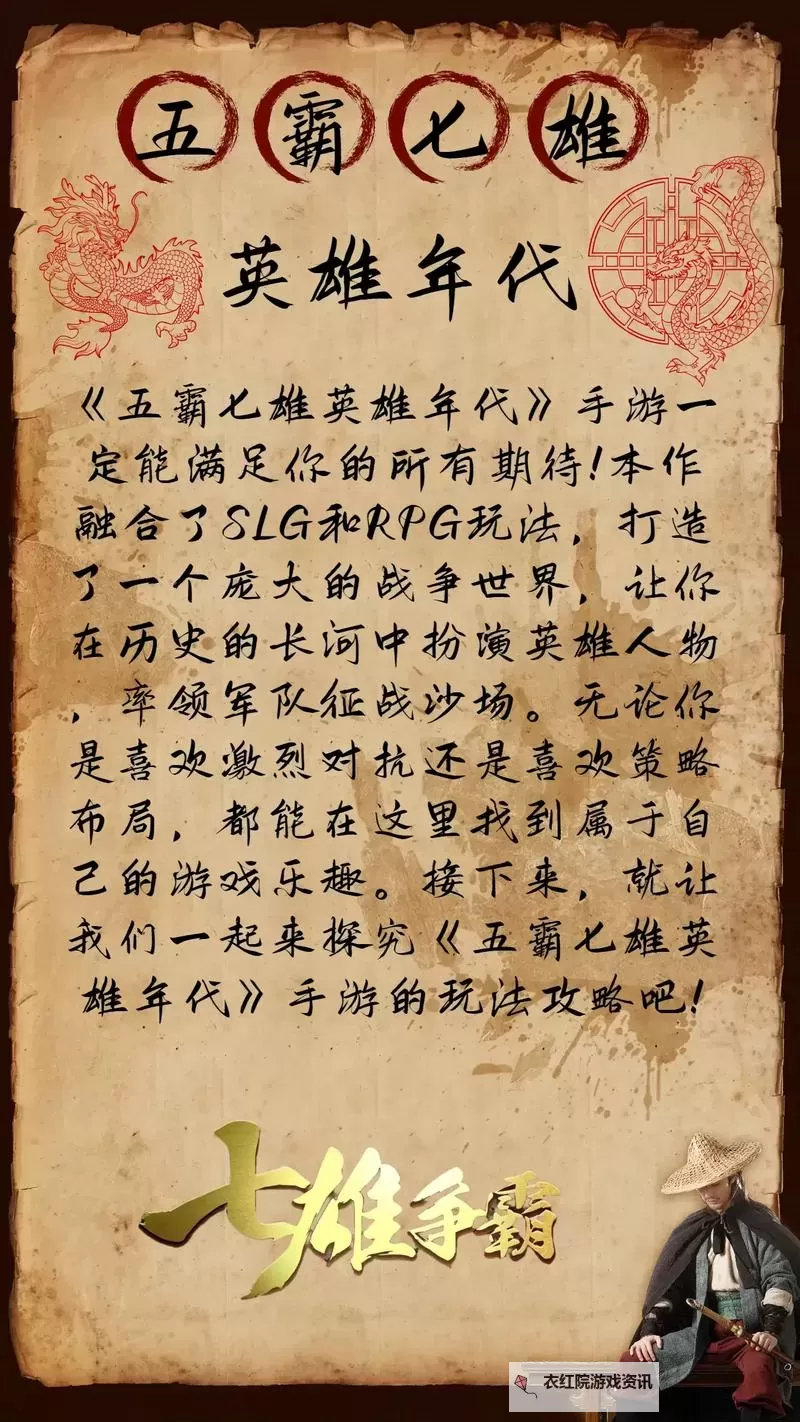 五霸七雄
英雄年代
《五霸七雄英雄年代》手游一
定能满足你的所有期待!本作
融合了SLG和RPG玩法，打造
了一个庞大的战争世界，让你
在历史的长河中扮演英雄人物
，率领军队征战沙场。无论你
是喜欢激烈对抗还是喜欢策略
布局，都能在这里找到属于自
己的游戏乐趣。接下来，就让
我们一起来探究《五霸七雄英
雄年代》手游的玩法攻略吧!
七雄争霸
衣红院游戏资讯